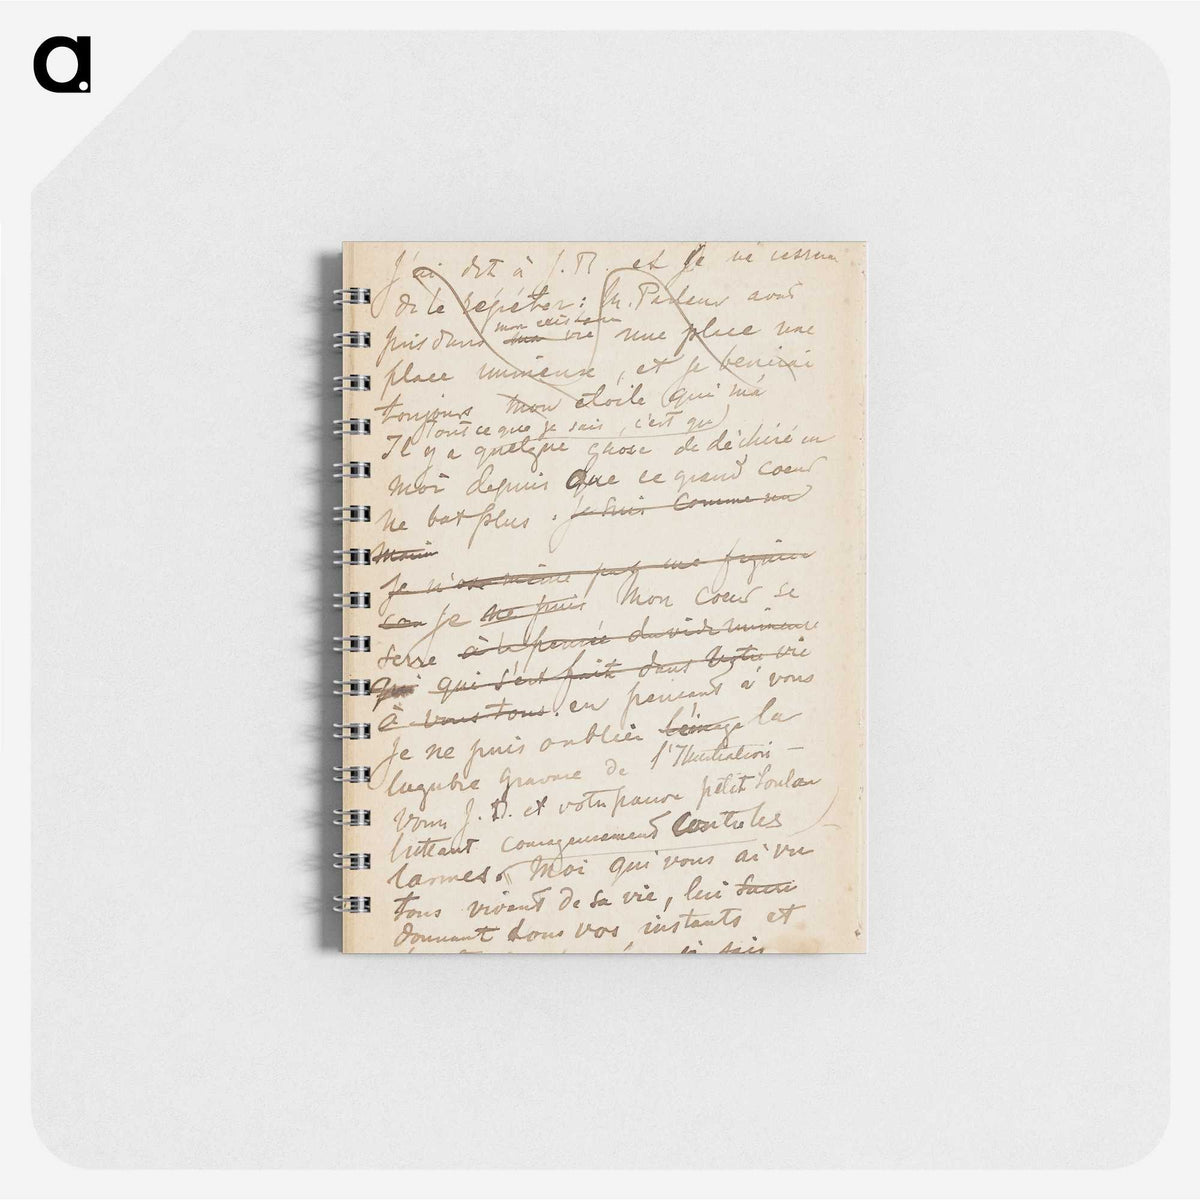 a.
J'ai dit à J. B et je ne cesserai
de le repéter: M. Pasteur avait
mon existence
pris dans ma vie une place une
place immense, et je benirai
toujours mon etoile qui m'a
Tout ce que je sais, c'est que
Il y a quelque chose de déchiré en
moi depuis que ce grand coeur
ne bat plus. Je suis comme un
Marin
Je n'ose même pas me figurer
son Je ne puis Mon coeur se
serre à la pensée du vide immense
qui qui s'est fait dans votre vie
à vous tous. en pensant à vous
Je ne puis oublier l'image la
lugubre gravure de l'Illustration –
Vous, J. B. et votre pauvre petit
luttant courageusement contre les
larmes. Moi qui vous ai vu
tous vivant de sa vie, lui
donnant tous vos instants et
je sais